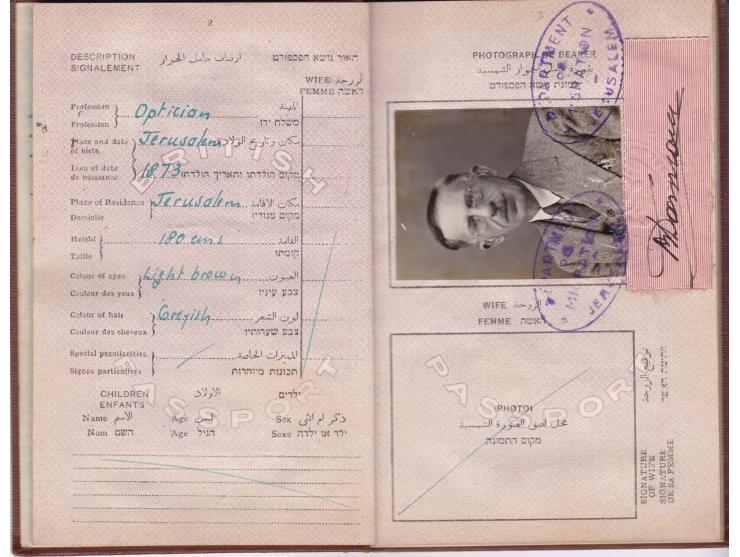 8
DESCRIPTION
SIGNALEMENT
اوصاف حامل الجواز
תאור נושא הפספורט
WIFE الزوجة
FEMME האשה
Profession
Profession
Optician
المهنة
משלח ידו
Place and date
of birth
Jerusalem
مكان وتاريخ الولادة
Lieu et date
de naissance
1873
מקום הולדתו ותאריך הולדתו
Place of Residence
Domicile
Jerusalem
مكان الاقامة
מקום מגוריו
Height
Taille
180 cms
القامة
קומתו
Colour of eyes
Couleur des yeux
Light brown
العيون
צבע עיניו
Colour of hair
Couleur des cheveux
Greyish
لون الشعر
צבע שערותיו
Special peculiarities
Signes particuliers
المميزات الخاصة
תכונות מיוחדות
CHILDREN
ENFANTS
الاولاد
ילדים
Name الاسم Age السن Sex ذكر ام انثى
Nom השם Age הגיל Sexe ילד או ילדה
BRITISH
PASSPORT
PHOTOGRAPH OF BEARER
תמונת נושא הפספורט
DEPARTMENT OF MIGRATION
JERUSALEM
DEPARTMENT OF MIGRATION
JERUSALEM
WIFE الزوجة
FEMME האשה
PASSPORT
PHOTO
محل لصق الصورة الشمسية
מקום התמונה
توقيع الزوجة
חתימת האשה
SIGNATURE
OF WIFE
SIGNATURE
DE SA FEMME